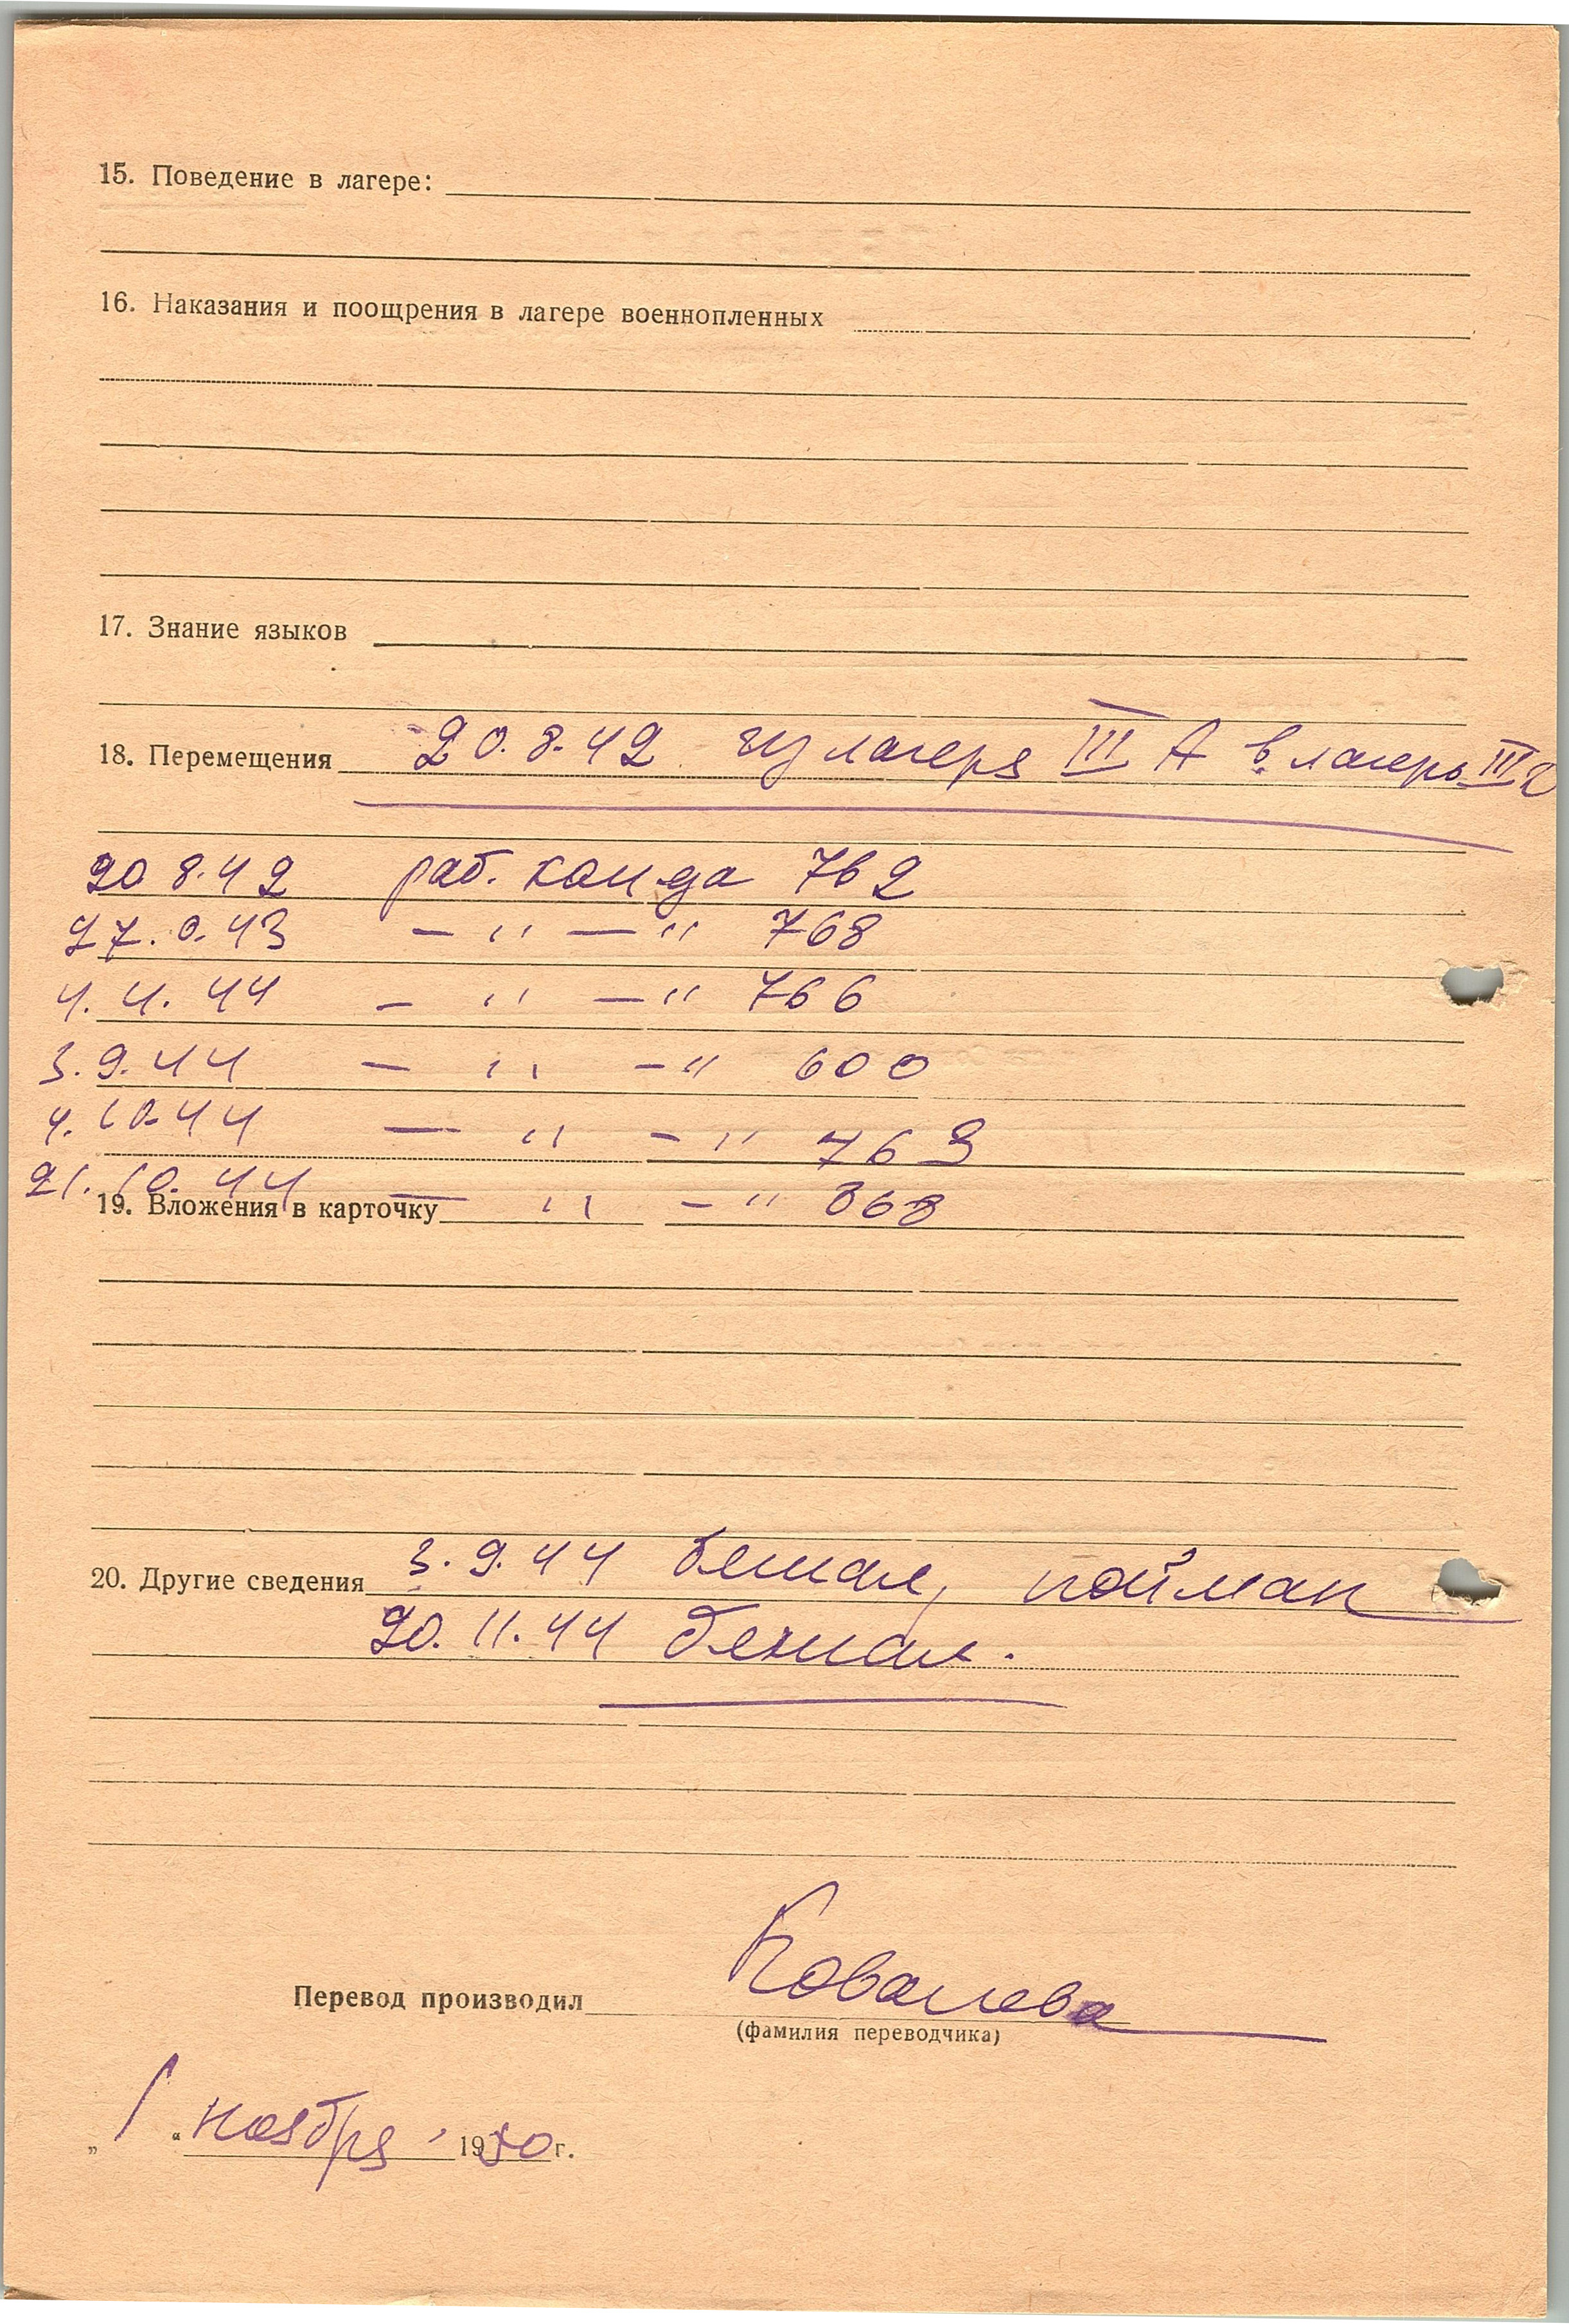 15. Поведение в лагере:
16. Наказания и поощрения в лагере военнопленных
17. Знание языков
18. Перемещения 20.8.42 из лагеря III A в лагерь III
20 8.42 раб. кашда 762
27. 43 — " — " 768
4. 4. 44 — " — " 766
3. 9. 44 — " — " 600
4. 10. 44 — " — " 763
21. 10. 44 — " — " 368
19. Вложения в карточку
20. Другие сведения 3. 9. 44 бежал, пойман
20. 11. 44 бежал.
Перевод производил Ковалева
(фамилия переводчика)
„ 1 “ ноября 1950 г.